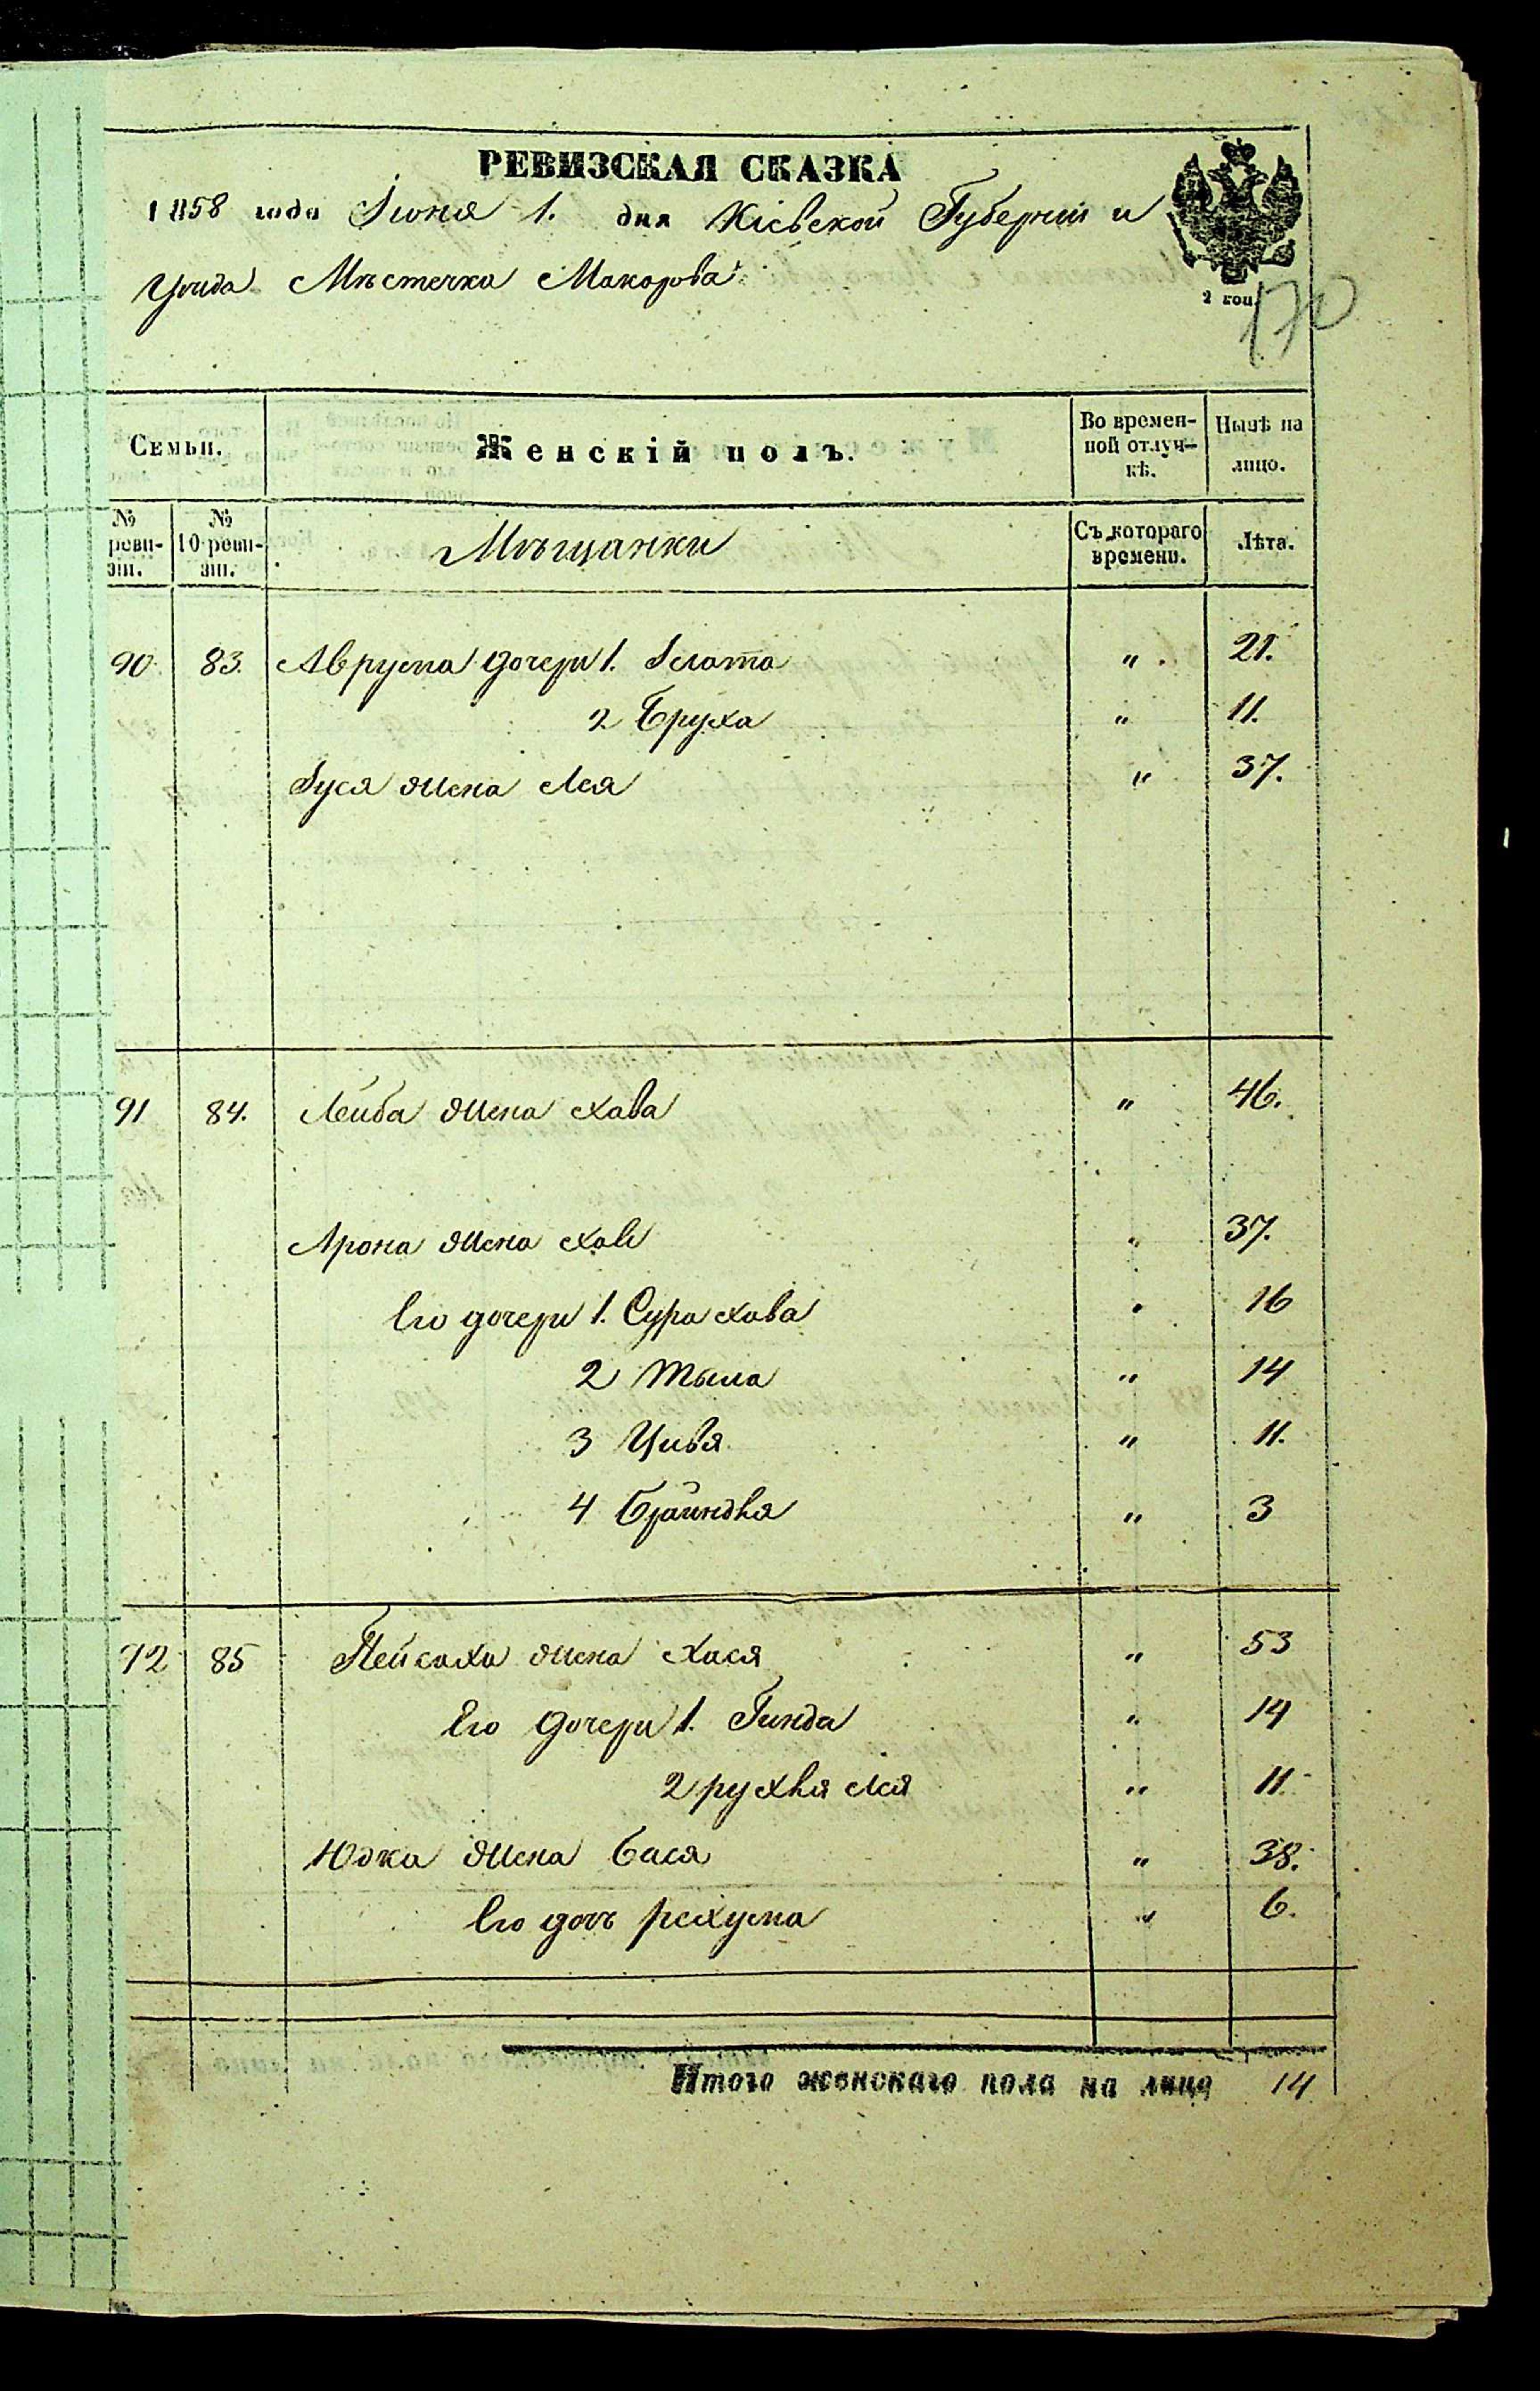 РЕВИЗСКАЯ СКАЗКА
1858 года Іюня 1. дня Кіевской Губерніи и
Уѣзда Мѣстечка Макарова
2 коп.
170
Семьи.
Женскій полъ.
Во времен-
ной отлуч-
кѣ.
Нынѣ на
лицо.
№
реви-
зіи.
№
10 реви-
зіи.
Мѣщанки
Съ котораго
времени.
Лѣта.
90 83. Аврума дочери 1. Злата " 21.
2 Бруха " 11.
Зуся жена Лея " 37.
91 84. Лейба жена Хава " 46.
Арона жена Хая " 37.
Его дочери 1. Сура Хава " 16
2 Тыла " 14
3 Цивя " 11.
4 Брайндля " 3
92 85 Пейсаха жена Хася " 53
Его дочери 1. Гинда " 14
2 рухля Лея " 11.
Юдка жена Бася " 38.
Его дочь рехума " 6.
Итого женскаго пола на лицо 14